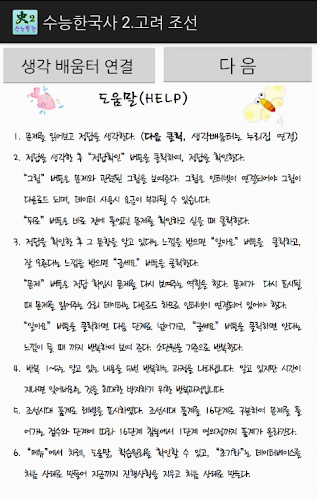 史2
수능한국사 2.고려 조선
생각 배움터 연결
다 음
도움말(HELP)
1. 문제를 읽어보고 정답을 생각한다. (다음 클릭, 생각배움터는 누리집 연결)
2. 정답을 생각한 후 "정답확인" 버튼을 클릭하여, 정답을 확인한다.
"그림" 버튼은 문제와 관련된 그림을 보여준다. 그림은 인터넷이 연결되어야 그림이
다운로드 되며, 데이터 사용시 요금이 부과될 수 있습니다.
"뒤로" 버튼은 바로 전에 풀었던 문제를 확인하고 싶을 때 클릭한다.
3. 정답을 확인한 후 그 문항을 알고 있다는 느낌을 받으면 "알아요" 버튼을 클릭하고,
잘 모른다는 느낌을 받으면 "글세요" 버튼을 클릭한다.
"문제" 버튼은 정답 확인시 문제를 다시 보여주는 역할을 한다. 문제가 다시 표시될
때 문제를 읽어주는 소리 데이터는 다운로드 하므로 인터넷이 연결되어 있어야 한다.
"알아요" 버튼을 클릭하면 다음 단계로 넘어가고, "글세요" 버튼을 클릭하면 안다는
느낌이 들 때 까지 반복하여 보여 준다. 소단원을 기준으로 반복한다.
4. 반복 1~5는 알고 있는 내용을 5번 반복하는 과정을 나타냅니다. 알고 있지만 시간이
지나면 잊어버리는 것을 최대한 방지하기 위한 반복과정입니다.
5. 조선시대 품계로 레벨을 표시하였다. 조선시대 품계를 16단계로 구분하여 문제를 풀
어가는 점수와 단계에 따라 16단계 참봉에서 1단계 영의정까지 품계가 올라간다.
6. "메뉴"에서 차례, 도움말, 학습원리를 확인할 수 있고, "초기화"는 데이터베이스를
처음 상태로 만들어 지금까지 진행상황을 지우고 처음 상태로 만든다.